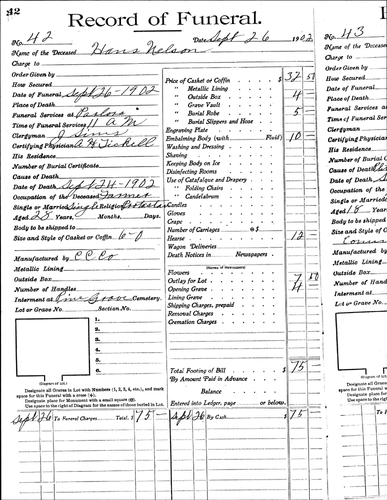 42
Record of Funeral.
No. 42 Date Sept 26 1902
Name of the Deceased Hans Nelson
Charge to
Order Given by
How Secured
Date of Funeral Sept 26-1902
Place of Death
Funeral Services at Parlors
Time of Funeral Services 11 A M
Clergyman J Sims
Certifying Physician A H Tickell
His Residence
Number of Burial Certificate
Cause of Death
Date of Death Sept 24-1902
Occupation of the Deceased Farmer
Single or Married Single Religion Protestan
Aged 28 Years, Months, Days.
Body to be shipped to
Size and Style of Casket or Coffin 6-0
Manufactured by C C Co
Metallic Lining
Outside Box
Number of Handles
Interment at Pine Grove Cemetery.
Lot or Grave No. Section No.
1.
2.
3.
4.
5.
6.
(Diagram of Lot.)
Designate all Graves in Lot with Numbers (1, 2, 3, 4, etc.), and mark
space for this Funeral with a cross
Designate place for Monument with a small square
Use space to the right of Diagram for the names of those buried in Lot.
Sept 26 To Funeral Charges Total, $ 75 -
Price of Casket or Coffin $ 37 50
" Metallic Lining
" Outside Box 4
" Grave Vault
" Burial Robe 5
" Burial Slippers and Hose
Engraving Plate
Embalming Body (with Fluid) 10 -
Washing and Dressing
Shaving
Keeping Body on Ice
Disinfecting Rooms
Use of Catafalque and Drapery
" Folding Chairs
" Candelabrum
Candles
Gloves
Crape
Number of Carriages @ $
Hearse 12 -
Wagon Deliveries
Death Notices in Newspapers
(Names of Newspapers)
Flowers
Outlay for Lot 7 50
Opening Grave 4
Lining Grave
Shipping Charges, prepaid
Removal Charges
Cremation Charges
Total Footing of Bill $ 75 -
By Amount Paid in Advance
Balance
Entered into Ledger, page or below.
Sept 26 By Cash $ 75
No. 43
Name of the Deceased
Charge to
Order Given by
How Secured
Date of Funeral
Place of Death
Funeral Services
Time of Funeral
Clergyman
Certifying Physician
His Residence
Number of Burial
Cause of Death
Date of Death
Occupation of the
Single or Married
Aged 18 Years,
Body to be shipped
Size and Style of
Manufactured by
Metallic Lining
Outside Box
Number of Handles
Interment at
Lot or Grave No.
(Diagram of Lot.)
Designate all
space for this Fun
Designate place
Use space to the